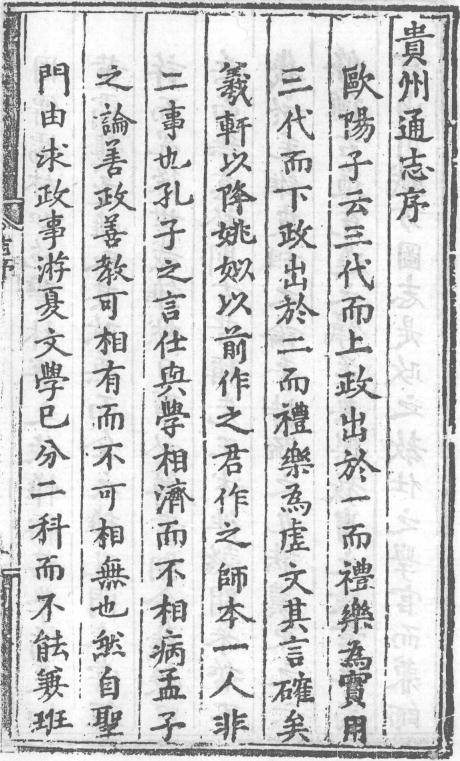 貴州通志序
歐陽子云三代而上政出於一而禮樂為實用
三代而下政出於二而禮樂為虛文其言確矣
羲軒以降姚姒以前作之君作之師本一人非
二事也孔子之言仕與學相濟而不相病孟子
之論善政善教可相有而不可相無也然自聖
門由求政事游夏文學已分二科而不能兼班